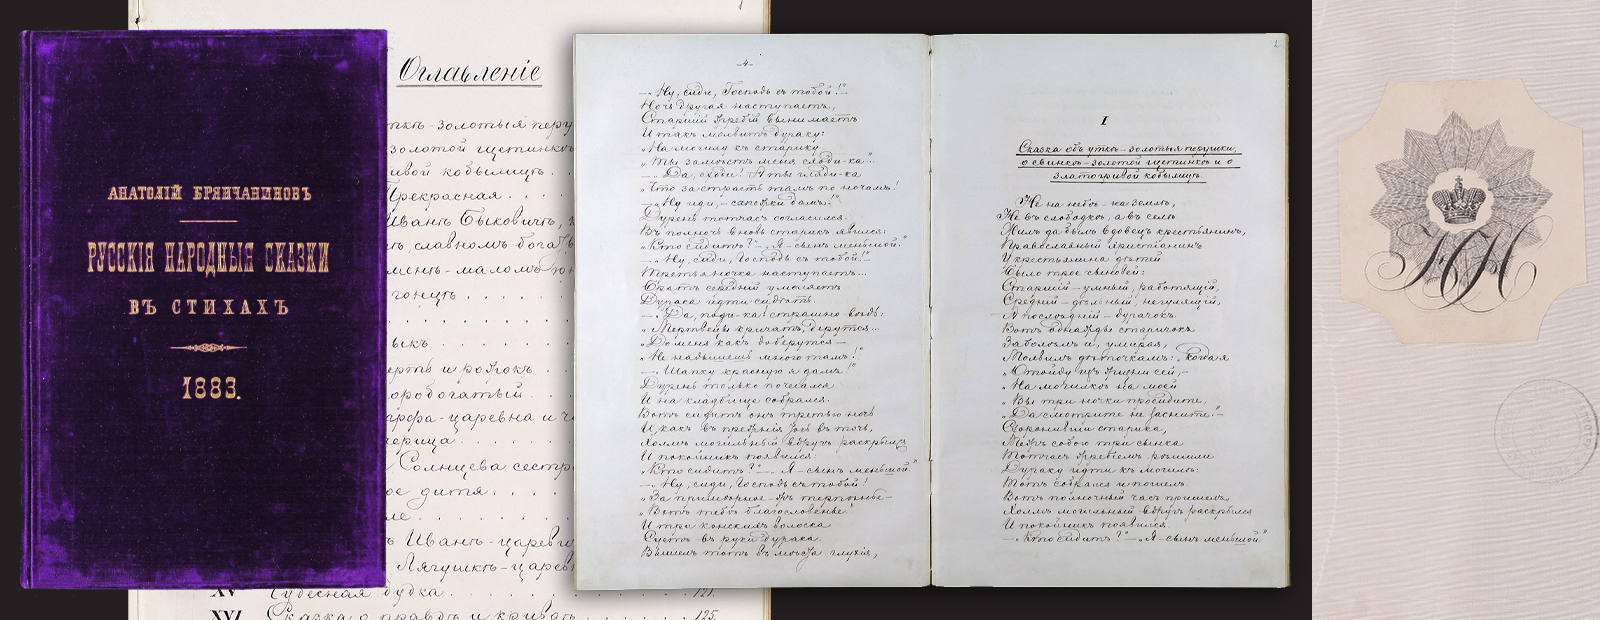 АНАТОЛІЙ БРЯНЧАНИНОВЪ
РУССКІЯ НАРОДНЫЯ СКАЗКИ
ВЪ СТИХАХЪ
1883.
Оглавленіе
золотой щетинкѣ
кобылицѣ.
Прекрасная
Иванъ Быковичъ,
славномъ
царевна и
Солнцева сестра
дитя
Иванъ-царевичъ
Лягушкѣ-царевнѣ
XV Чудесная дудка 121.
XVI Сказка о правдѣ и кривдѣ 125.
-4-
—„Ну, сиди, Господь съ тобой!"—
Ночь другая наступаетъ,
Старшій жребій вынимаетъ
И такъ молвитъ дураку:
„На могилу къ старику
„Ты замѣстъ меня сходи-ка".
—„Да, сходи! А ты гляди-ка
„Что за страсть тамъ по ночамъ!
—„Ну иди,— сапожки дамъ."
Дурень тотчасъ согласился.
Въ полночь вновь старикъ явился:
„Кто сидитъ?"—„Я-сынъ меньшой."
—„Ну, сиди, Господь съ тобой!"
Третья ночка наступаетъ...
Братъ средній умоляетъ
Дурака идти сидѣть.
—„Да, поди-ка! страшно вѣдь:
„Мертвецы кричатъ, дерутся...
„До меня какъ доберутся—
„Не надышешь много тамъ!"
—„Шапку красную я дамъ!"
Дурень только почесался
И на кладбище собрался.
Вотъ сидитъ онъ третью ночь
И, какъ въ прежнія точь въ точь,
Холмъ могильный вдругъ раскрылся
И покойникъ появился:
„Кто сидитъ?"—„Я-сынъ меньшой."
—„Ну, сиди, Господь съ тобой!
„За примѣрное терпѣнье—
„Вотъ тебѣ благословенье."
И три конскихъ волоска
Суётъ въ руки дурака.
Вышелъ тотъ въ мѣста глухія,
2
I
Сказка объ уткѣ-золотыя перушки,
о свинкѣ-золотой щетинкѣ и о
златогривой кобылицѣ.
Не на небѣ-на землѣ,
Не въ слободкѣ, а въ селѣ
Жилъ да былъ вдовецъ крестьянинъ,
Православный христіанинъ
У крестьянина дѣтей
Было трое сыновей:
Старшій-умный, работящій,
Средній-дѣльный, негулящій,
А послѣдній-дурачокъ.
Вотъ однажды старичокъ
Заболѣлъ и, умирая,
Молвилъ дѣточкамъ: „когда я
„Отойду изъ жизни сей,-
„На могилкѣ на моей
„Вы три ночки просидите,
„Да смотрите не засните!"—
Схоронивши старика,
Межъ собою три сынка
Тотчасъ жребіемъ рѣшили
Дураку идти къ могилѣ:
Тотъ собрался и пошелъ.
Вотъ полночный часъ пришелъ,
Холмъ могильный вдругъ раскрылся
И покойникъ появился.
—„Кто сидитъ?"—„Я-сынъ меньшой."